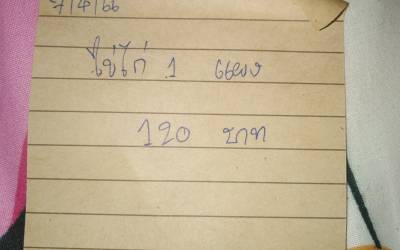 7/4/66
ไข่ไก่ 1 แผง
120 บาท